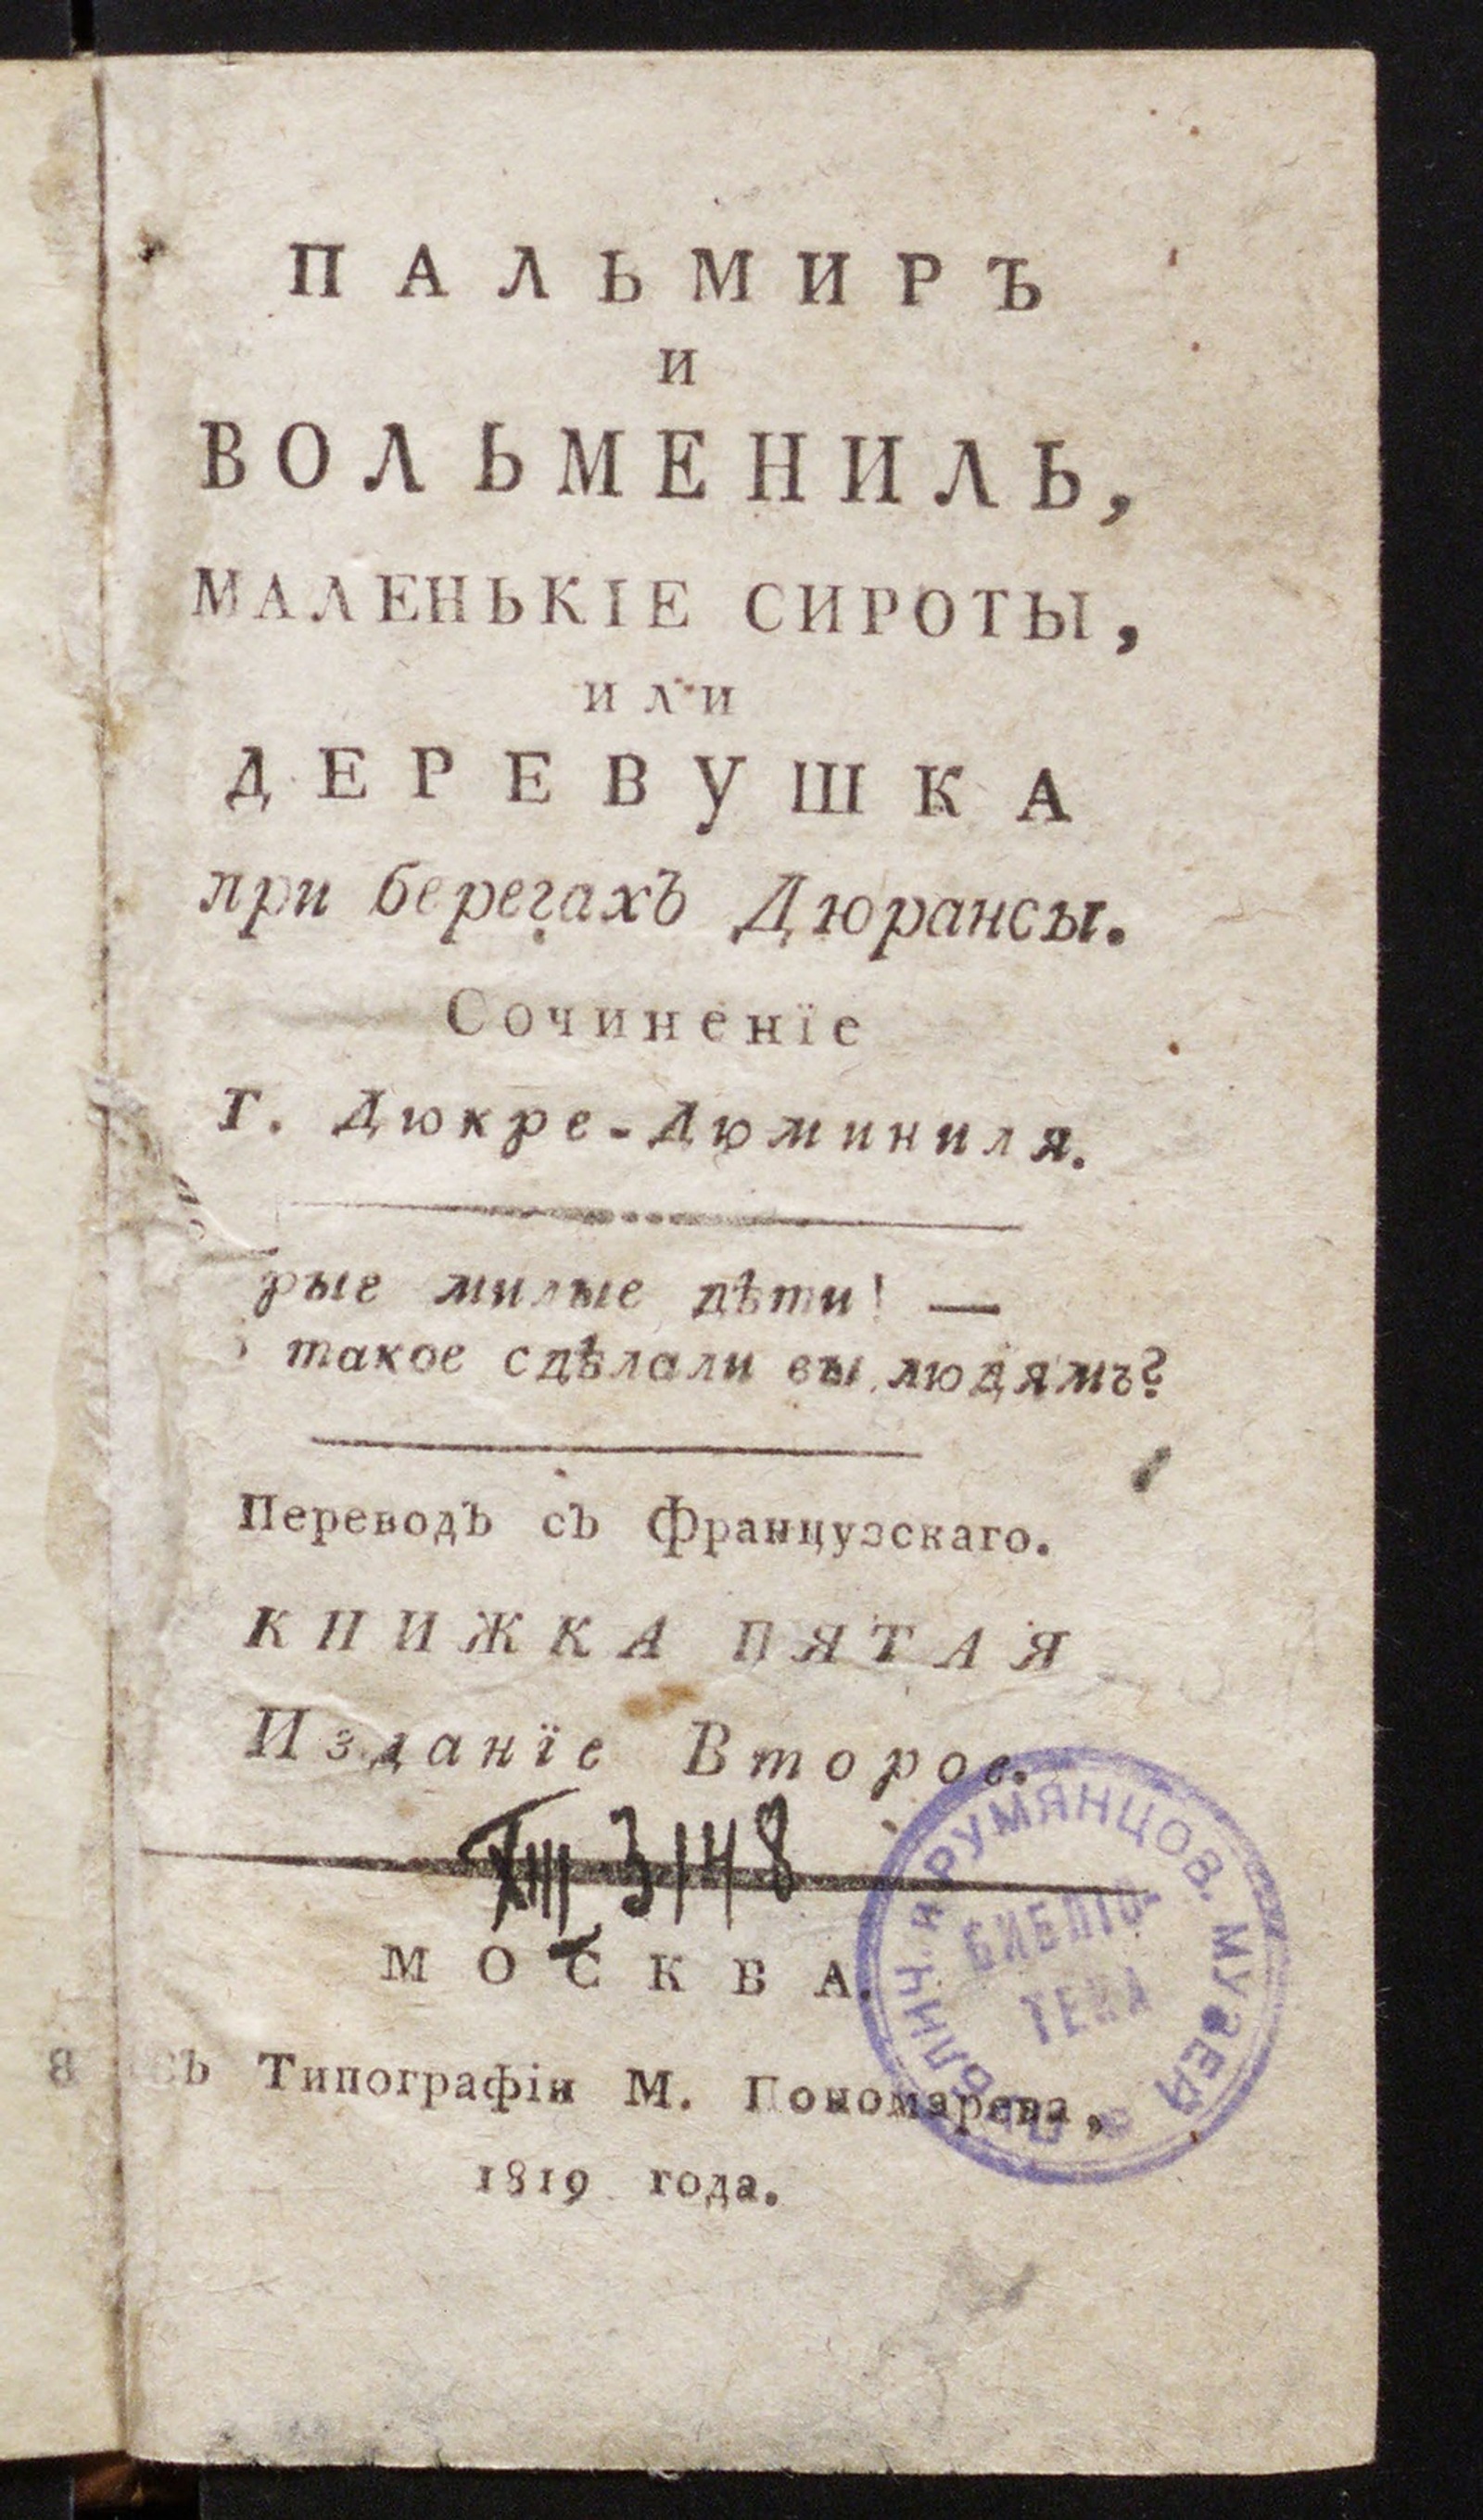 ПАЛЬМИРЪ
И
ВОЛЬМЕНИЛЬ,
МАЛЕНЬКІЕ СИРОТЫ,
или
ДЕРЕВУШКА
при берегахъ Дюрансы.
Сочиненїе
Г. Дюкре-Дюминиля.
рые милые дѣти! —
такое сдѣлали вы людямъ?
Переводъ съ Французскаго.
КНИЖКА ПЯТАЯ
Изданїе Второе.
XIII 3148
МОСКВА.
Въ Типографіи М. Пономарева,
1819 года.
ПУБЛИЧ. и РУМЯНЦОВ. МУЗЕЯ
БИБЛІО-
ТЕКА
8